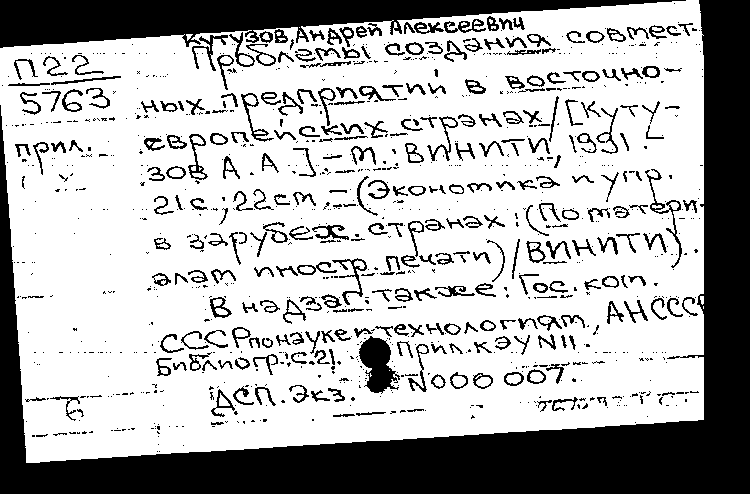 Кутузов, Андрей Алексеевич
П22
5763
прил.
Проблемы создания совмест-
ных предприятий в восточно-
европейских странах / [Куту-
зов А. А.]. – М.: ВИНИТИ, 1991. –
21 с.; 22 см. – (Экономика и упр.
в зарубеж. странах: (По матери-
алам иностр. печати) / ВИНИТИ).
В надзаг. также: Гос. ком.
СССР по науке и технологиям, АН СССР
Библиогр.: с. 21. Прил. к ЭУ N11.
ДСП. Экз. N000 007.
6